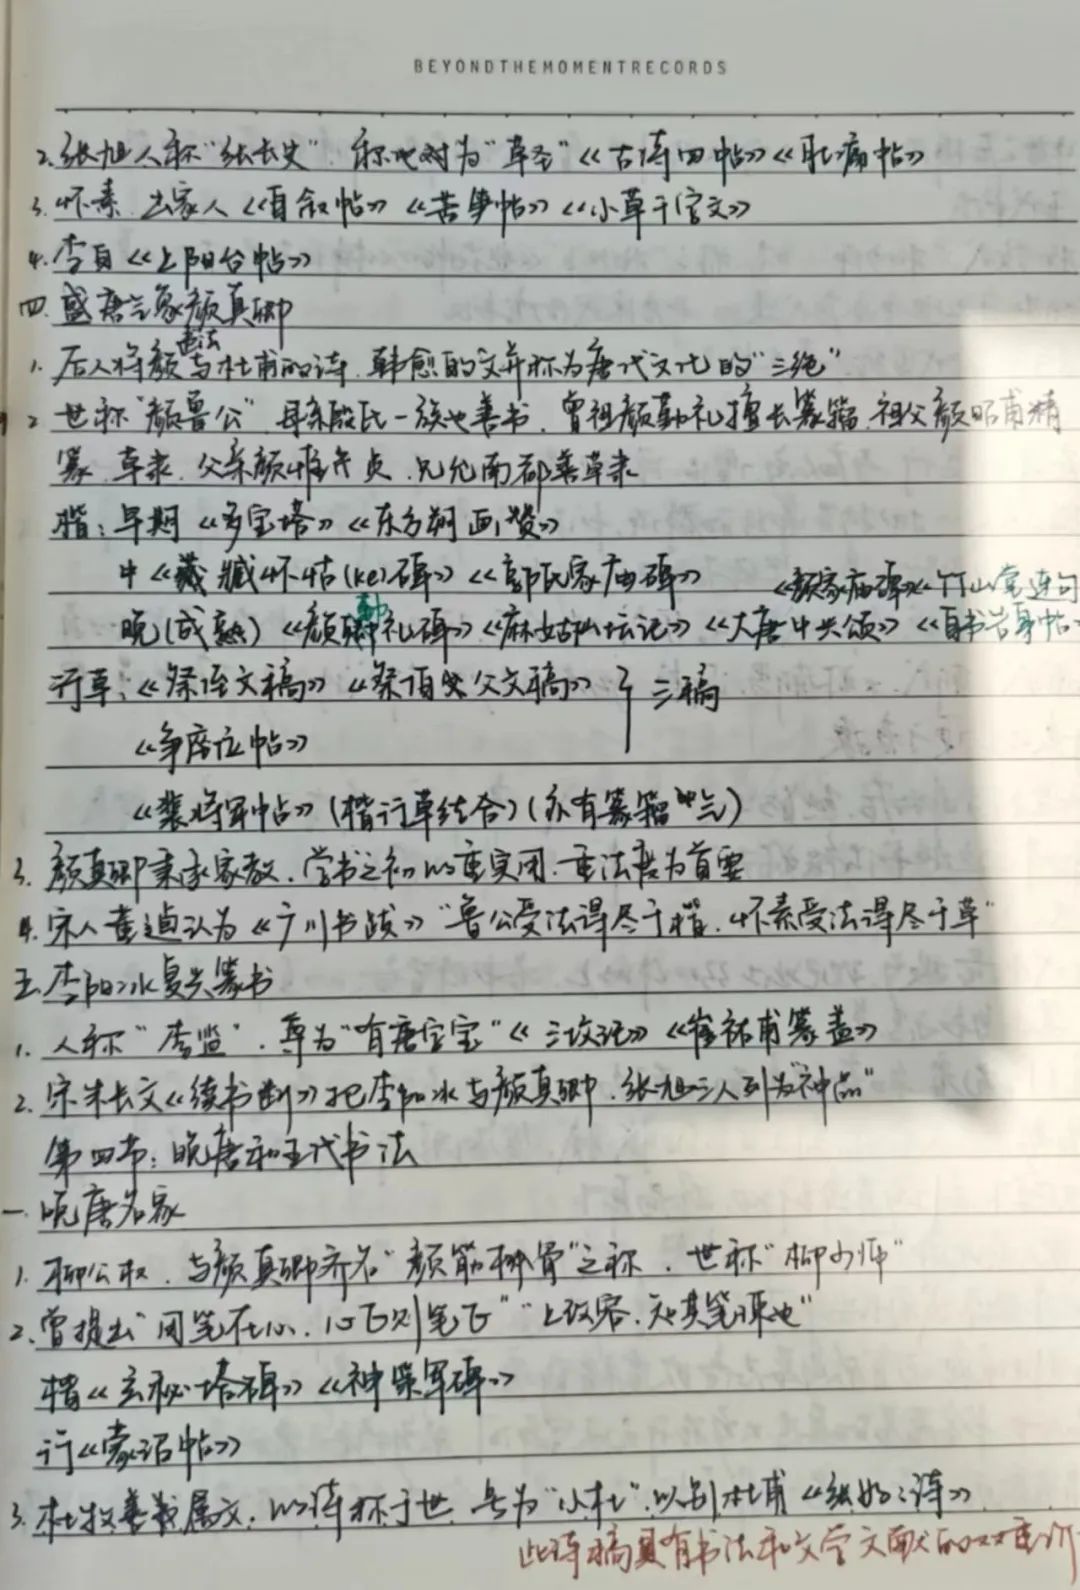 BEYONDTHEMOMENTRECORDS
2.张旭人称“张长史”.称他为“草圣”《古诗四帖》《肚痛帖》
3.怀素 出家人《自叙帖》《苦笋帖》《小草千字文》
4.李白《上阳台帖》
四.盛唐气象颜真卿
书法
1.后人将颜与杜甫的诗.韩愈的文并称为唐代文化的“三绝”
2 世称“颜鲁公”.母系殷氏一族也善书.曾祖颜勤礼擅长篆籀.祖父颜昭甫精
篆.草隶.父亲颜惟贞.兄允南都善草隶
楷:早期《多宝塔》《东方朔画赞》
中《臧怀恪(ke)碑》《郭氏家庙碑》 《颜家庙碑》《竹山堂连句
晚(成熟)《颜勤礼碑》《麻姑仙坛记》《大唐中兴颂》《自书告身帖》
行草:《祭侄文稿》《祭伯父文稿》} 三稿
《争座位帖》
《裴将军帖》(楷行草结合)(亦有篆籀)
3.颜真卿秉承家教.学书之初以重实用.重法度为首要
4.宋人董逌认为《广川书跋》“鲁公受法得尽于楷.怀素受法得尽于草”
五.李阳冰复兴篆书
1.人称“李监”.尊为“有唐宝”《三坟记》《崔祐甫篆盖》
2.宋朱长文《续书断》把李阳冰与颜真卿.张旭三人列为“神品”
第四节:晚唐和五代书法
一.晚唐名家
1.柳公权.与颜真卿齐名“颜筋柳骨”之称.世称“柳少师”
2.曾提出“用笔在心.心正则笔正”“上改容.知其笔谏也”
楷《玄秘塔碑》《神策军碑》
行《蒙诏帖》
3.杜牧善属文.以诗称于世 号为“小杜”.以别杜甫《张好好诗》
此诗稿具有书法和文学文献的双重价